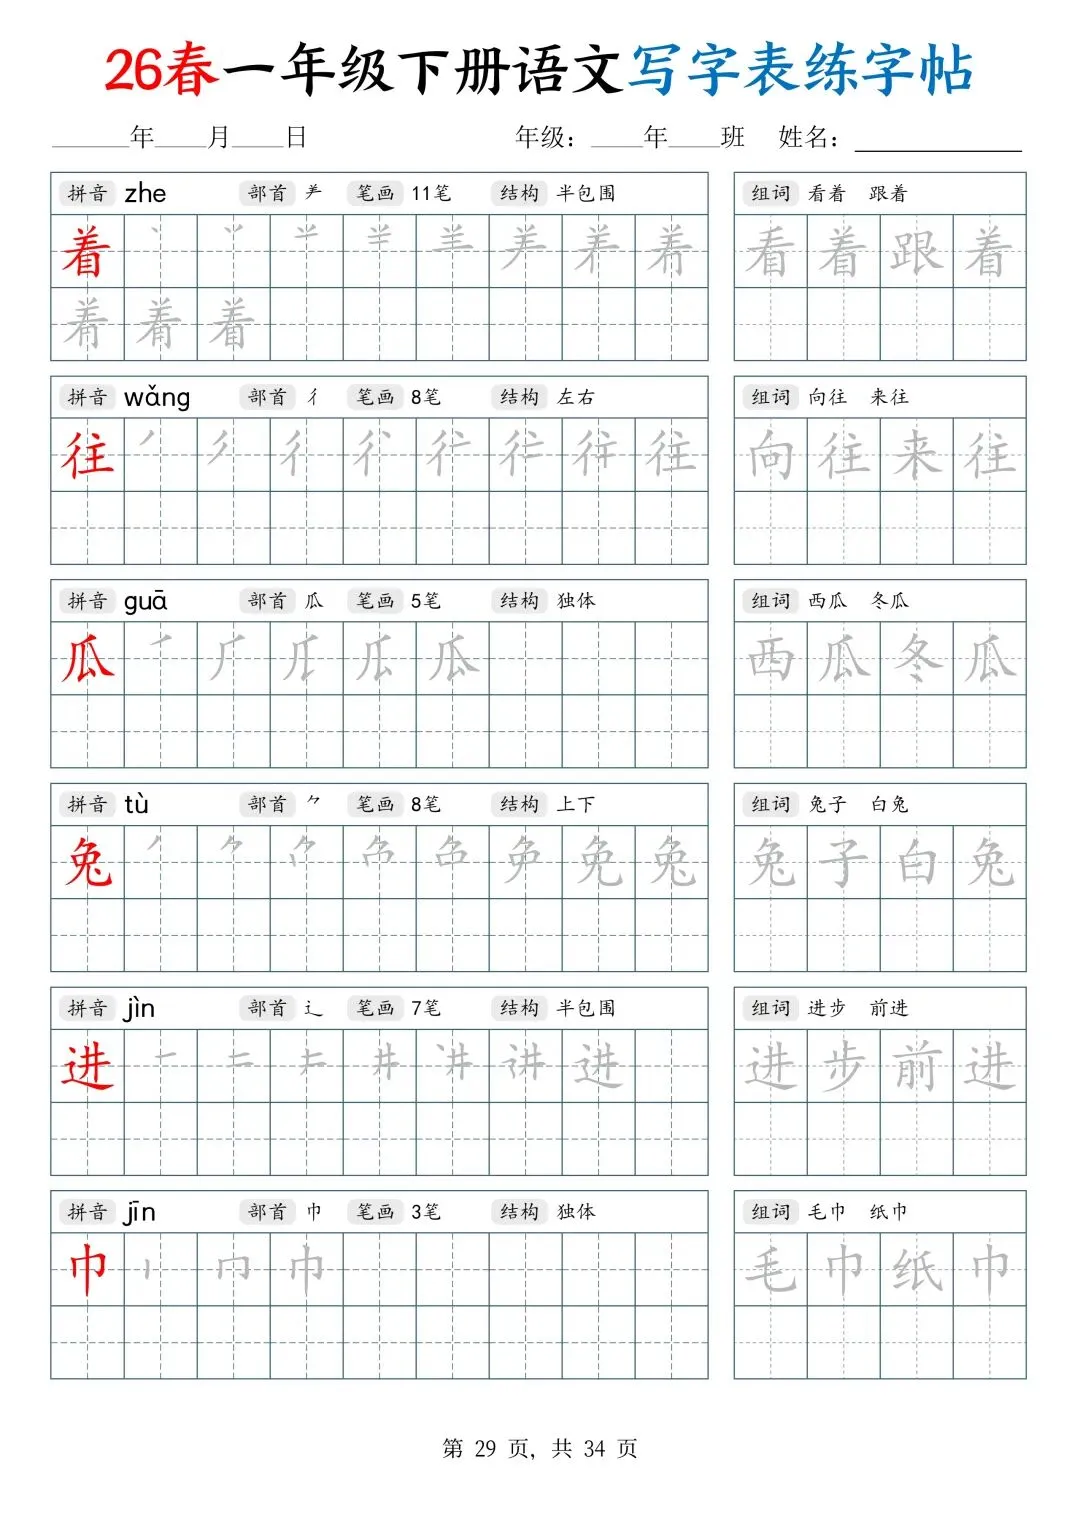 26春一年级下册语文写字表练字帖
______年____月____日 年级：____年____班 姓名：____________
拼音 zhe 部首 ⺶ 笔画 11笔 结构 半包围 组词 看着 跟着
着 看着跟着
着
拼音 wǎng 部首 彳 笔画 8笔 结构 左右 组词 向往 来往
往 往 向往来往
拼音 guā 部首 瓜 笔画 5笔 结构 独体 组词 西瓜 冬瓜
瓜 瓜 西瓜冬瓜
拼音 tù 部首 ⺈ 笔画 8笔 结构 上下 组词 兔子 白兔
兔 兔 兔子白兔
拼音 jìn 部首 辶 笔画 7笔 结构 半包围 组词 进步 前进
进 进 进步前进
拼音 jīn 部首 巾 笔画 3笔 结构 独体 组词 毛巾 纸巾
巾 巾 毛巾纸巾
第 29 页，共 34 页